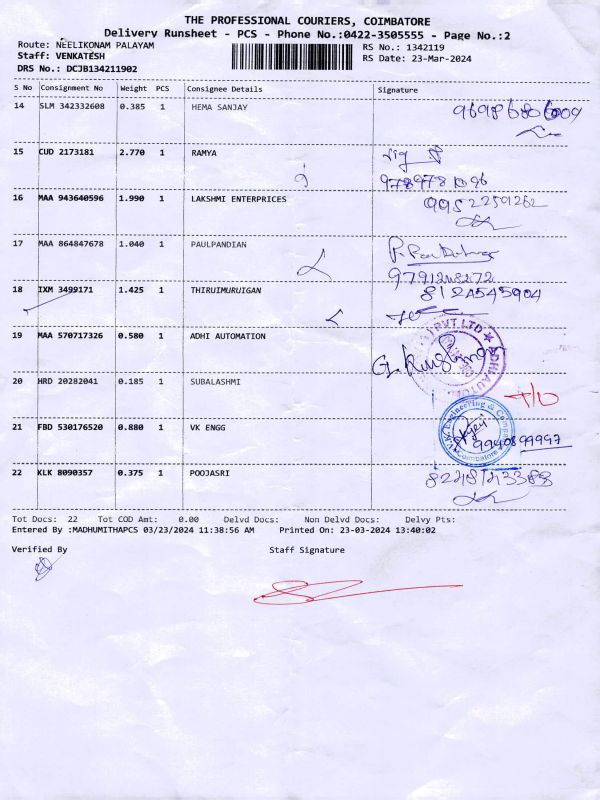 THE PROFESSIONAL COURIERS, COIMBATORE
Delivery Runsheet - PCS - Phone No.:0422-3505555 - Page No.:2
Route: NEELIKONAM PALAYAM
RS No.: 1342119
Staff: VENKATESH
RS Date: 23-Mar-2024
DRS No.: DCJB134211902
S No Consignment No Weight PCS Consignee Details Signature
14 SLM 342332608 0.385 1 HEMA SANJAY
15 CUD 2173181 2.770 1 RAMYA
16 MAA 943640596 1.990 1 LAKSHMI ENTERPRICES
9952259262
17 MAA 864847678 1.040 1 PAULPANDIAN
18 IXM 3499171 1.425 1 THIRUIMURUIGAN
19 MAA 570717326 0.580 1 ADHI AUTOMATION
PVT LTD
20 HRD 20282041 0.185 1 SUBALASHMI
21 FBD 530176520 0.880 1 VK ENGG
Engineering &
9940899997
Coimbatore
22 KLK 8090357 0.375 1 POOJASRI
Tot Docs: 22 Tot COD Amt: 0.00 Delvd Docs: Non Delvd Docs: Delvy Pts:
Entered By :MADHUMITHAPCS 03/23/2024 11:38:56 AM Printed On: 23-03-2024 13:40:02
Verified By Staff Signature